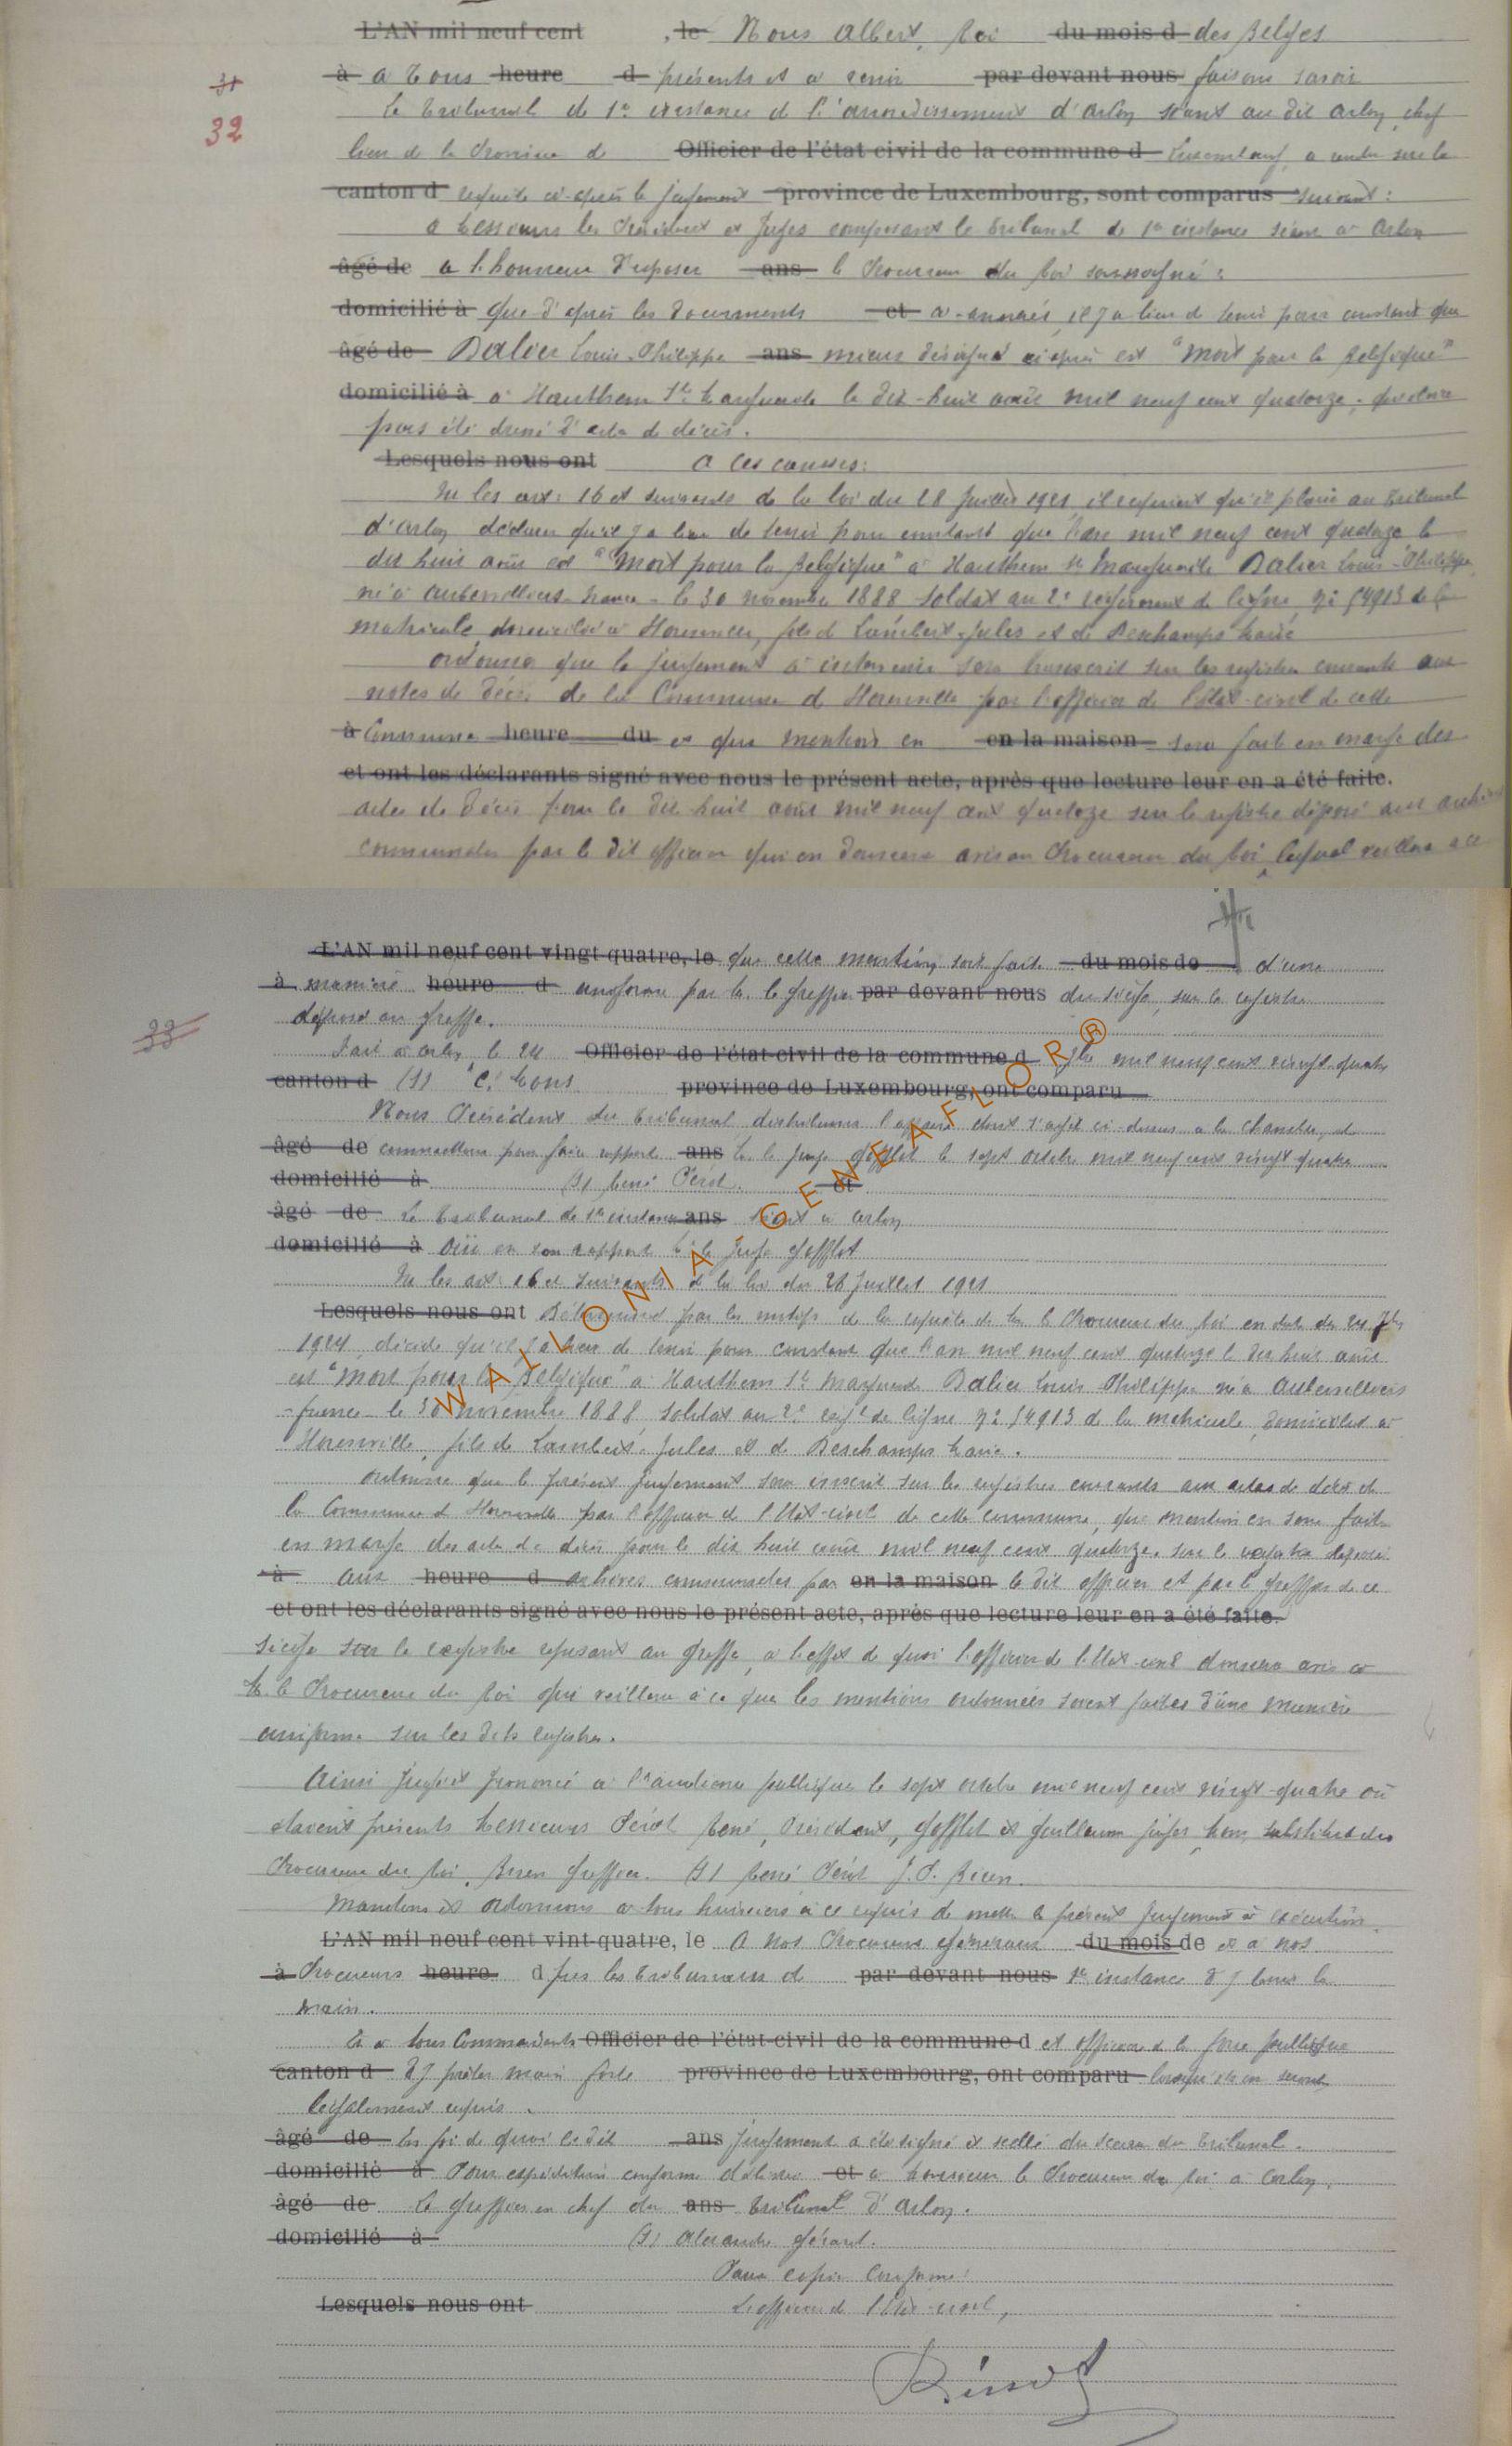 L'AN mil neuf cent , le Nous Albert, Roi du mois d des Belges
31
à a tous heure d présents et à venir par devant nous faisons savoir
32
Le tribunal de 1e instance de l'arrondissement d'Arlon séant au dit Arlon, chef
lieu de la Province de Officier de l'état civil de la commune d Luxembourg, a rendu sur la
canton d requête ci-après le jugement province de Luxembourg, sont comparus suivant :
A Messieurs les Président et Juges composant le tribunal de 1e instance séant à Arlon
âgé de a l'honneur d'exposer ans le Procureur du Roi soussigné :
domicilié à que d'après les documents et ci-annexés, il y a lieu de tenir pour constant que
âgé de Dalier Louis-Philippe ans mieux désigné ci-après est "Mort pour la Belgique"
domicilié à à Hauthem Ste Marguerite le dix-huit août mil neuf cent quatorze,
pas été dressé d'acte de décès.
Lesquels nous ont A ces causes :
Vu les art : 16 et suivants de la loi du 28 Juillet 1921, il requiert qu'il plaise au tribunal
d'Arlon déclarer qu'il y a lieu de tenir pour constant que l'an mil neuf cent quatorze le
dix huit août est "Mort pour la Belgique" à Hauthem Ste Marguerite Dalier Louis-Philippe
né à Aubervilliers-France - le 30 novembre 1888 soldat au 2e régiment de ligne, n° 54913 de la
matricule, domicilié à Houmville, fils de Lambert-Jules et de Deschamps Marie
ordonner que le jugement à intervenir sera transcrit sur les registres courants aux
actes de décès de la Commune d par l'officier de l'état-civil de cette
à Commune heure du et que mention en en la maison sera faite en marge des
et ont les déclarants signé avec nous le présent acte, après que lecture leur en a été faite.
actes de décès pour le dix huit août mil neuf cent quatorze sur le registre déposé aux archives
communales par le dit officier qui en donnera avis au Procureur du Roi, lequel veillera à ce
L'AN mil neuf cent vingt quatre, le que cette mention soit faite du mois de d'une
à manière heure d uniforme par Mr le greffier par devant nous du siège, sur le registre
33
déposé au greffe.
Fait à Arlon, le 24 Officier de l'état-civil de la commune d 7bre mil neuf cent vingt-quatre
canton d (s) province de Luxembourg, ont comparu
Nous Président du tribunal distribuons l'affaire dont s'agit ci-dessus à la chambre, et
âgé de commettons pour faire rapport ans Mr le Juge Gofflot le sept octobre mil neuf cent vingt quatre
domicilié à (s) René Périt. et
âgé de Le tribunal de 1e instance ans séant à Arlon
domicilié à Ouï en son rapport Mr le Juge Gofflot
Vu les art : 16 et suivants de la loi du 28 Juillet 1921
Lesquels nous ont Déterminé par les motifs de la requête de Mr le Procureur du Roi en date du 24 7bre
1924, décide qu'il y a lieu de tenir pour constant que l'an mil neuf cent quatorze le dix huit août
est "Mort pour la Belgique" à Hauthem Ste Marguerite Dalier Louis Philippe né à Aubervilliers
-France- le 30 novembre 1888, soldat au 2e régt de ligne n° 54913 de la matricule, domicilié à
fils de Lambert-Jules et de Deschamps Marie.
ordonne que le présent jugement sera inscrit sur les registres courants aux actes de décès de
la Commune d par l'officier de l'état-civil de cette commune, que mention en sera faite
en marge des actes de décès pour le dix huit août mil neuf cent quatorze, sur le registre déposé
à aux heure d archives communales par en la maison le dit officier et par le greffier de ce
et ont les déclarants signé avec nous le présent acte, après que lecture leur en a été faite.
siège sur le registre reposant au greffe, à l'effet de quoi l'officier de l'état-civil donnera avis à
Mr le Procureur du Roi qui veillera à ce que les mentions ordonnées soient faites d'une manière
uniforme sur les dits registres.
Ainsi jugé et prononcé à l'audience publique le sept octobre mil neuf cent vingt-quatre où
étaient présents Messieurs Périt René, Président, Gofflot et Guillaume juges, substitut du
Procureur du Roi, greffier. (s) René Périt J. P.
Mandons et ordonnons à tous huissiers à ce requis de mettre le présent jugement à exécution.
L'AN mil neuf cent vint-quatre, le A nos Procureurs généraux du mois de et à nos
à Procureurs heure d près les tribunaux de par devant nous 1e instance d'y tenir la
main.
Et à tous Commandants Officier de l'état-civil de la commune d et officiers de la force publique
canton d d'y prêter main forte province de Luxembourg, ont comparu lorsqu'ils en seront
légalement requis.
âgé de En foi de quoi le dit ans jugement a été signé et scellé du sceau du tribunal.
domicilié à Pour expédition conforme délivrée et à Monsieur le Procureur du Roi à Arlon,
âgé de Le greffier en chef du ans tribunal d'Arlon.
domicilié à (s) Alexandre Gérard.
Pour copie conforme :
Lesquels nous ont L'officier de l'état-civil,
WALLONIA GENEAFLOR®